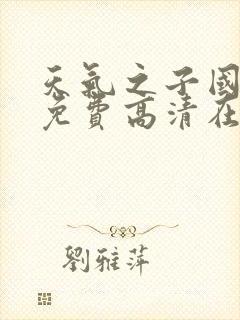 天氣之子國
免費高清在
劉雅萍